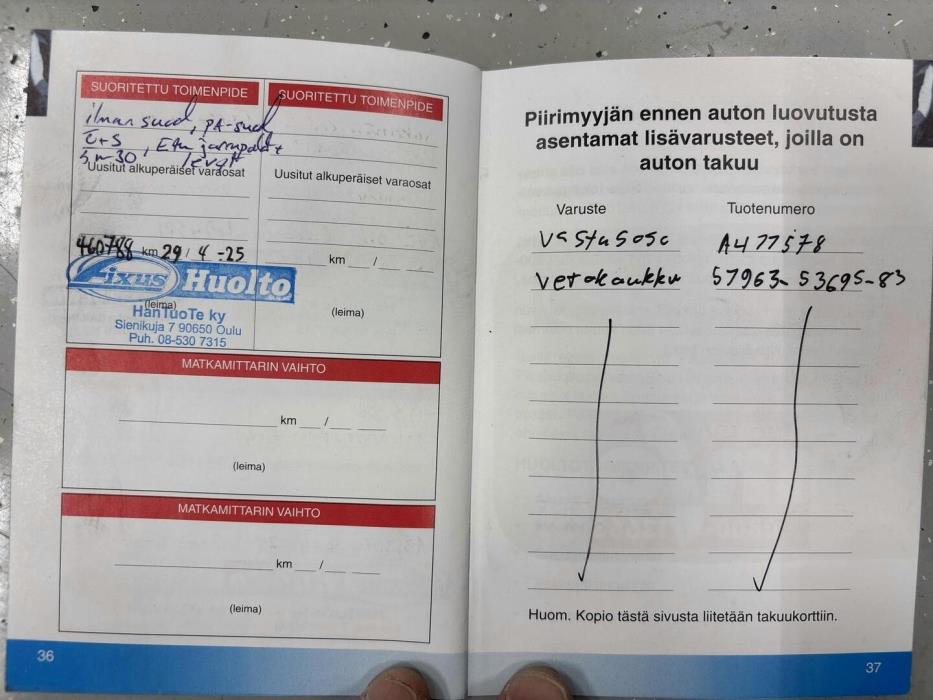 SUORITETTU TOIMENPIDE
ilmansuod, PA-suod
Ö+S, Etu jarrupalat+
5w-30, levyt
Uusitut alkuperäiset varaosat
460788 km 29 / 4 -25
Fixus Huolto
(leima)
HanTuoTe ky
Sienikuja 7 90650 Oulu
Puh. 08-530 7315
SUORITETTU TOIMENPIDE
Uusitut alkuperäiset varaosat
km __ / __ __
(leima)
MATKAMITTARIN VAIHTO
km __ / __ __
(leima)
MATKAMITTARIN VAIHTO
km __ / __ __
(leima)
36
Piirimyyjän ennen auton luovutusta
asentamat lisävarusteet, joilla on
auton takuu
Varuste Tuotenumero
Vastusosa A477578
Verokaukku 57963-53695-83
Huom. Kopio tästä sivusta liitetään takuukorttiin.
37